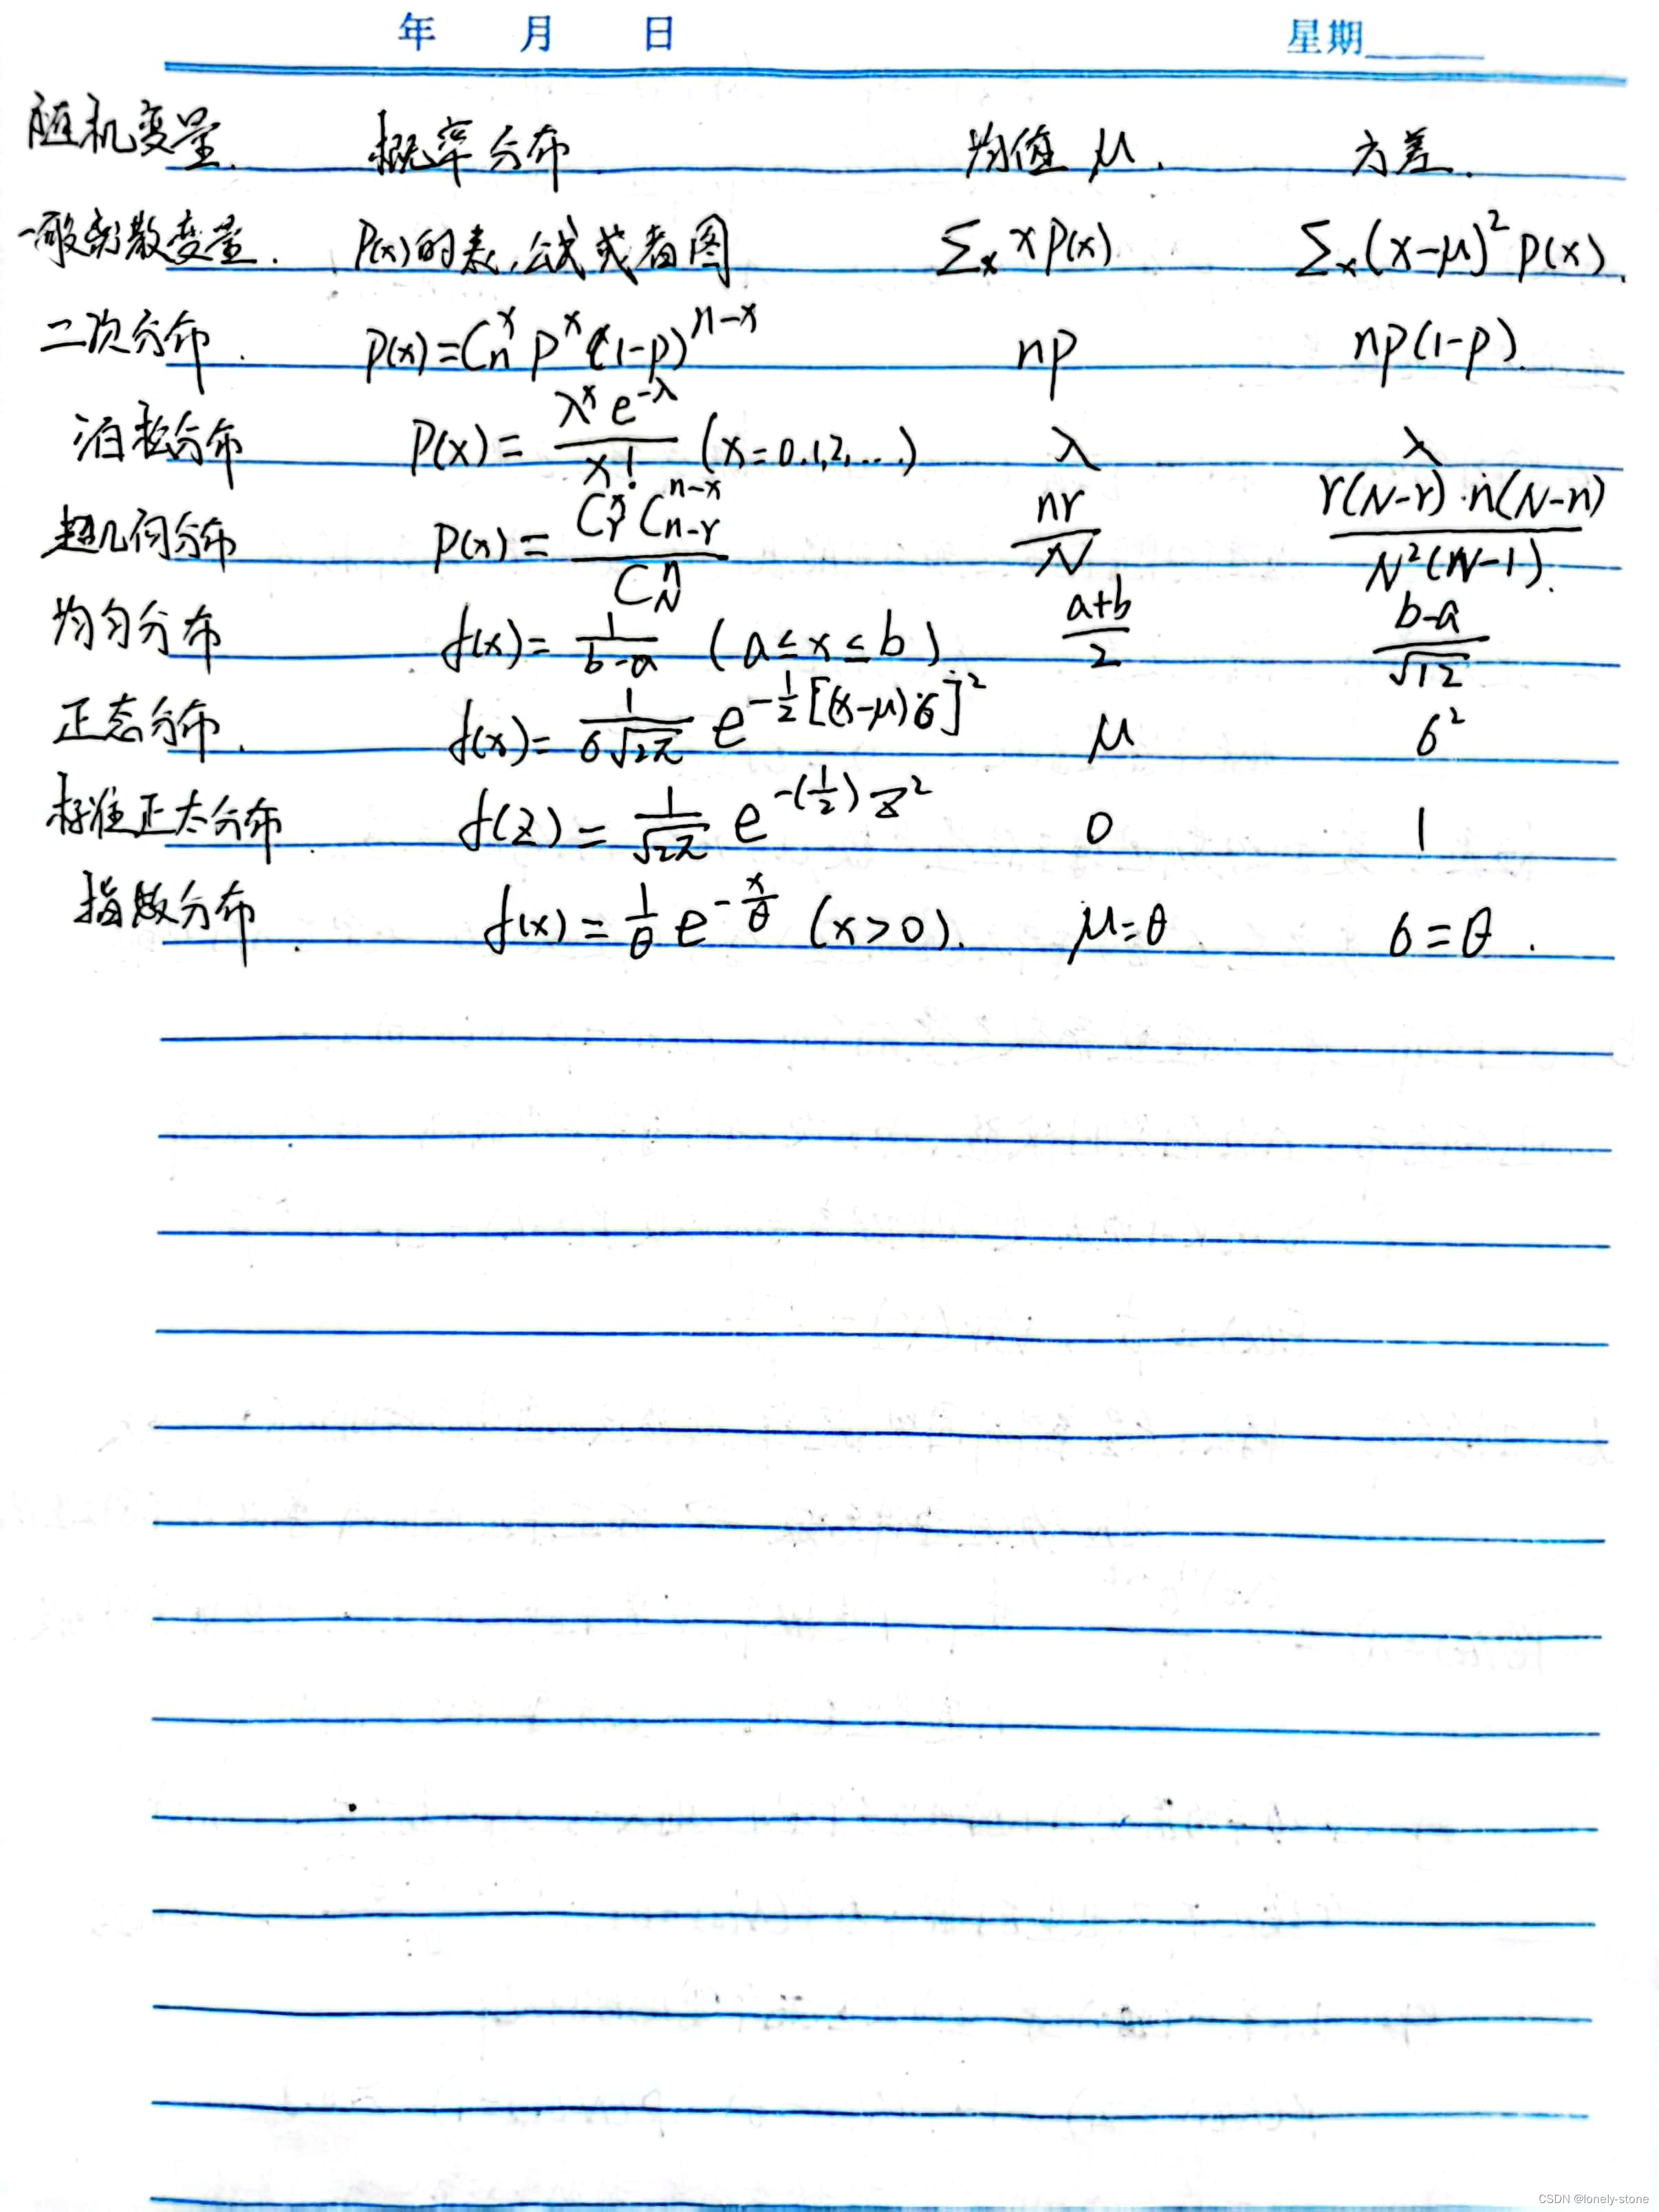 年 月 日 星期
随机变量. 概率分布 均值 μ. 方差.
一般离散变量. P(x)的表,公式或者图 Σₓ x P(x) Σₓ(x-μ)² P(x).
二次分布. P(x)=Cₙˣ pˣ (1-p)ⁿ⁻ˣ np np(1-p).
泊松分布 P(x) = λˣ e^(-λ) / x! (x=0,1,2,...) λ λ
超几何分布 P(x) = C_r^x C_{n-r}^{n-x} / C_N^n nr/N r(N-r)·n(N-n) / N²(N-1).
均匀分布 f(x) = 1/(b-a) (a≤x≤b) (a+b)/2 (b-a)/√12
正态分布. f(x) = 1/(σ√2π) e^(-1/2[(x-μ)÷σ]²) μ σ²
标准正态分布. f(z) = 1/√2π e^(-(1/2)z²) 0 1
指数分布. f(x) = 1/θ e^(-x/θ) (x>0). μ=θ σ=θ.
CSDN @lonely-stone